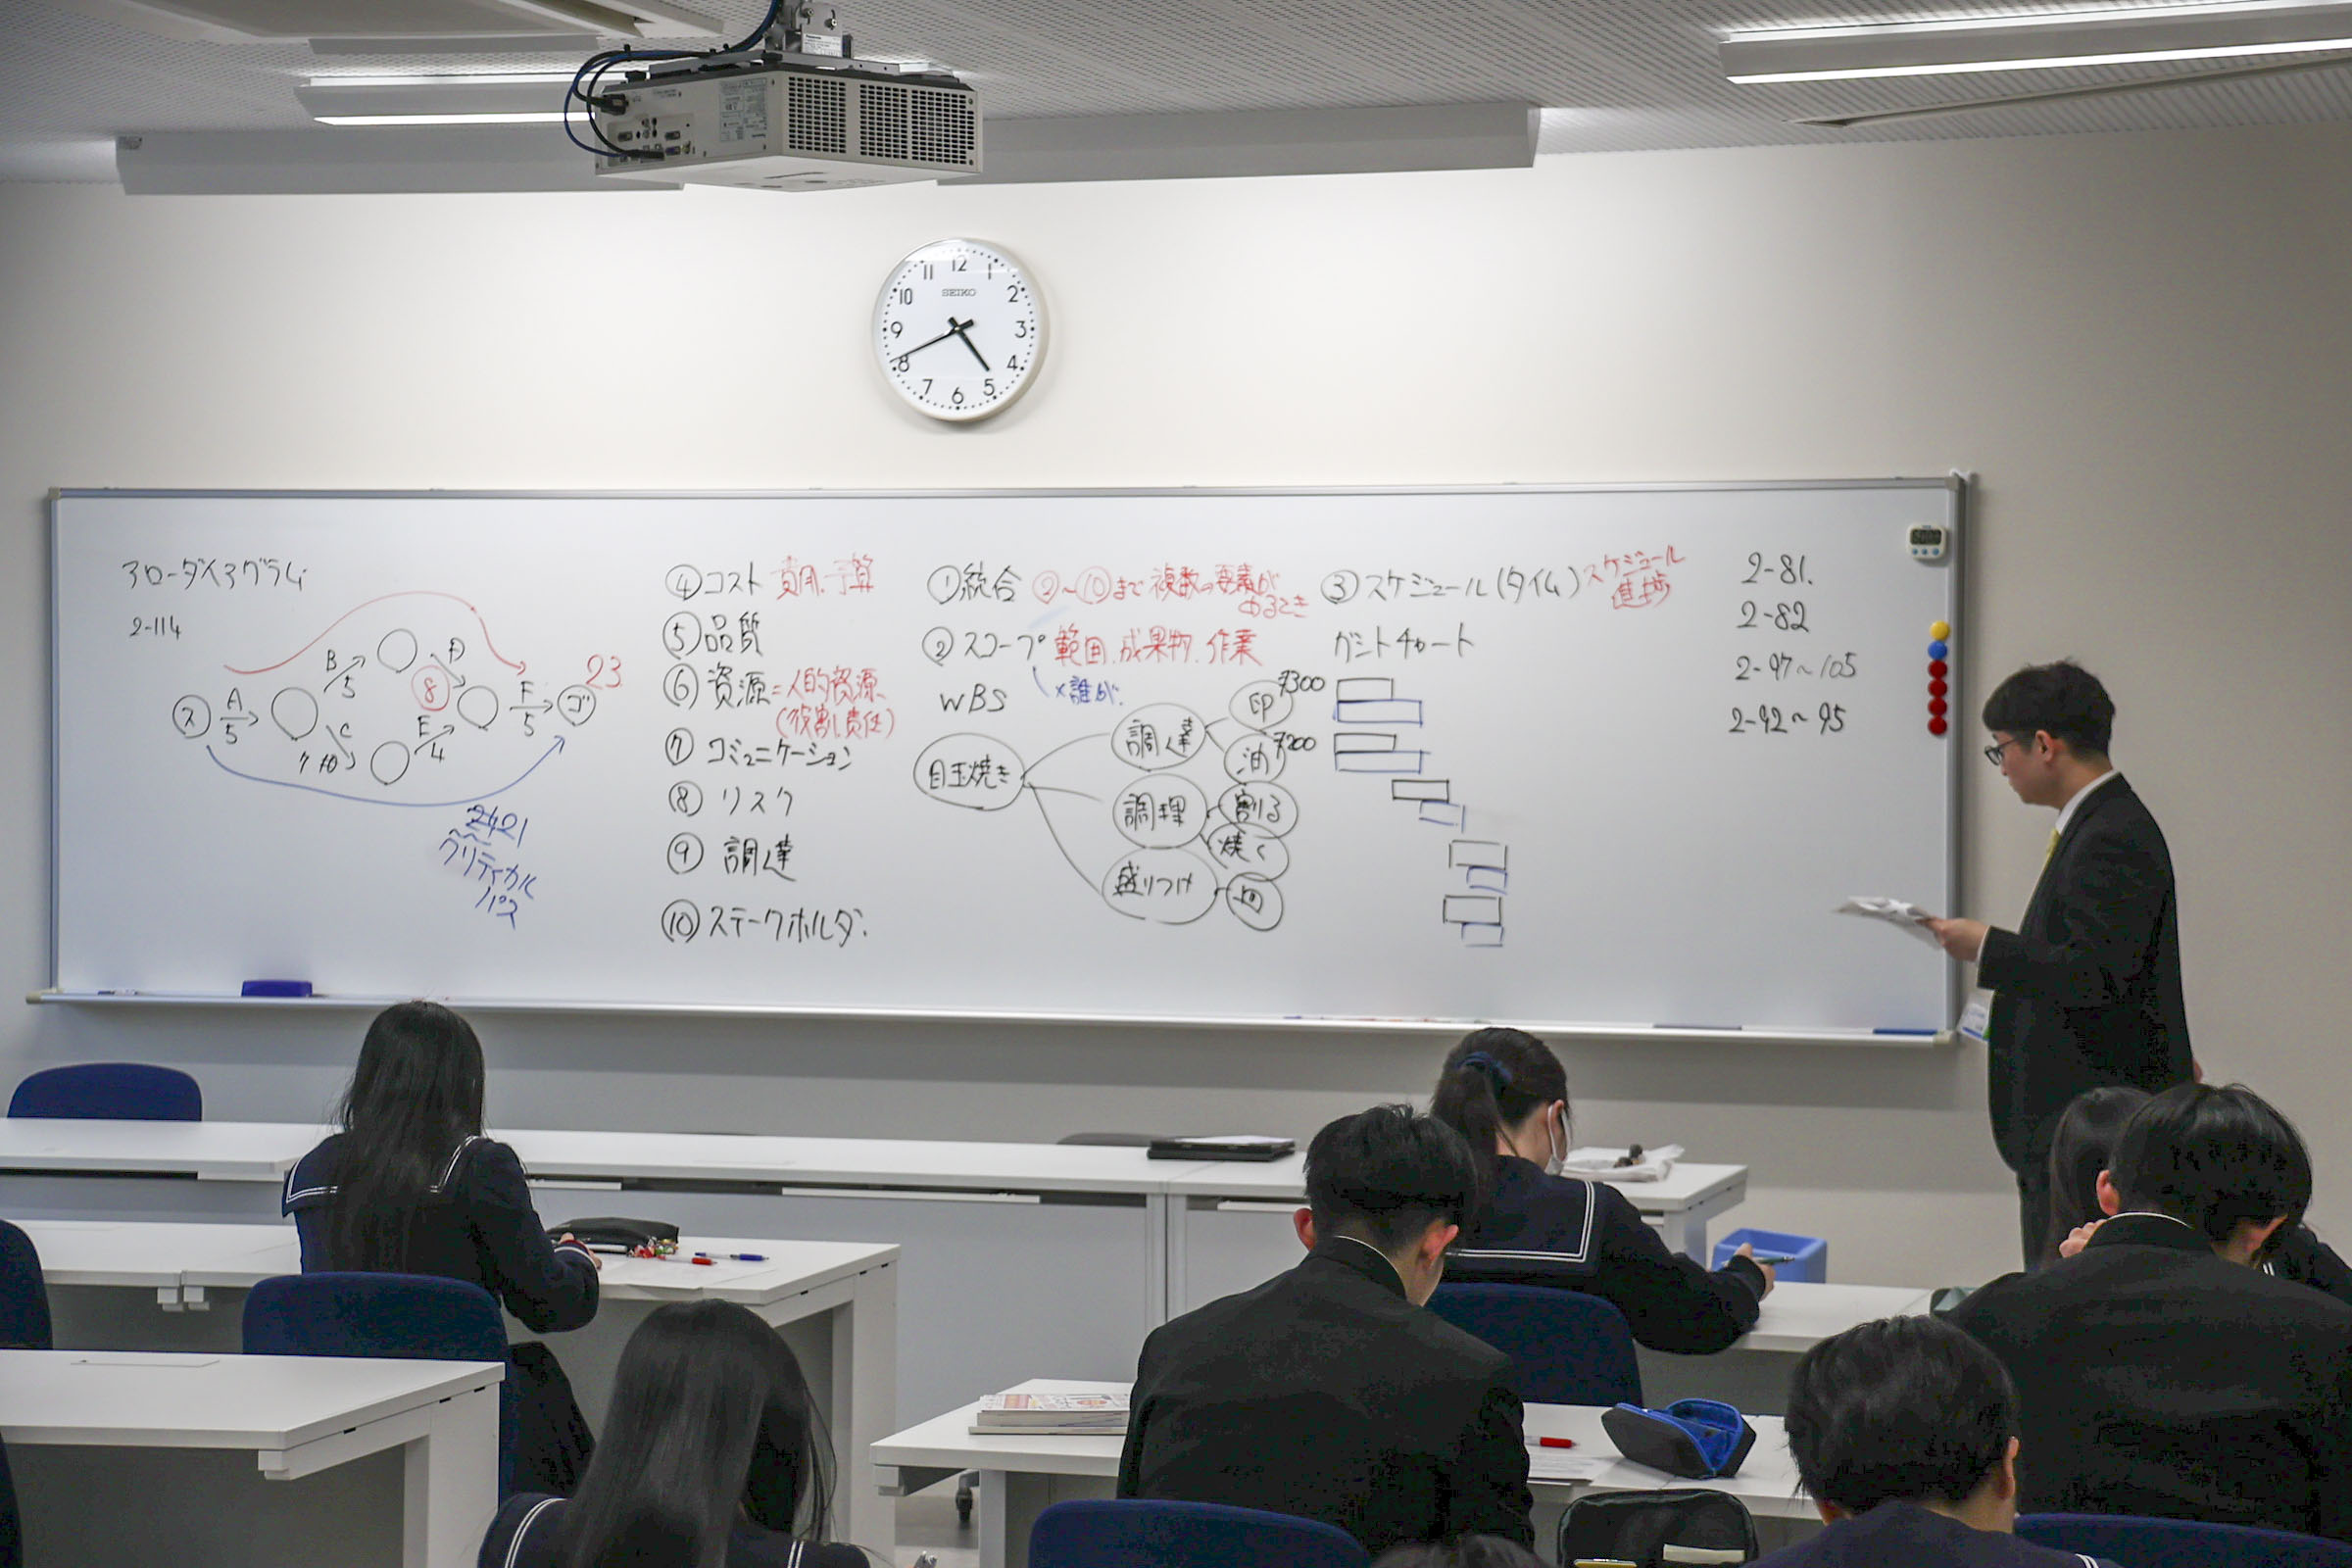 SEIKO
12
1
2
3
4
5
6
7
8
9
10
11
アローダイアグラム
2-114
ス
A
5
B
5
C
7
D
8
E
4
F
5
ゴ
23
クリティカル
パス
④コスト 費用、予算
⑤品質
⑥資源=人的資源、
(役割し責任)
⑦コミュニケーション
⑧リスク
⑨調達
⑩ステークホルダ
①統合 ②~⑩まで 複数の要素が
あるとき
②スコープ 範囲、成果物、作業
×誰が
WBS
目玉焼き
調達
¥300
油
¥200
調理
割る
焼く
盛りつけ
皿
③スケジュール(タイム) スケジュール
進捗
ガントチャート
2-81.
2-82
2-97~105
2-92~95